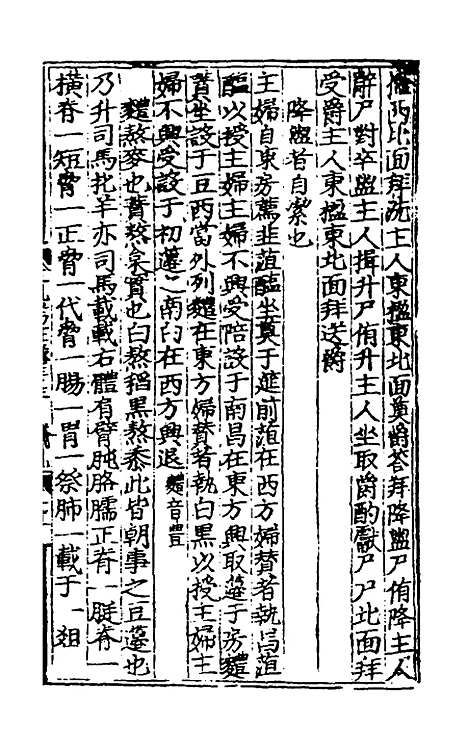 西北面拜洗主人東楹東北面奠爵荅拜降盥尸侑降主人
辭尸對卒盥主人揖升尸侑升主人坐取爵酌獻尸尸北面拜
受爵主人東楹東北面拜送爵
降盥者自潔也
主婦自東房薦韭菹醢坐奠于筵前菹在西方婦贊者執昌菹
醢以授主婦主婦不興受陪設于南昌在東方興取籩于房麷
蕡坐設于豆西當外列麷在東方婦贊者執白黑以授主婦主
婦不興受設于初籩之南白在西方興退麷音豐
麷熬麥也蕡熬枲實也白熬稻黑熬黍此皆朝事之豆籩也
乃升司馬朼羊亦司馬載載右體肩臂肫胳臑正脊一脡脊一
橫脊一短脅一正脅一代脅一腸一胃一祭肺一載于一俎